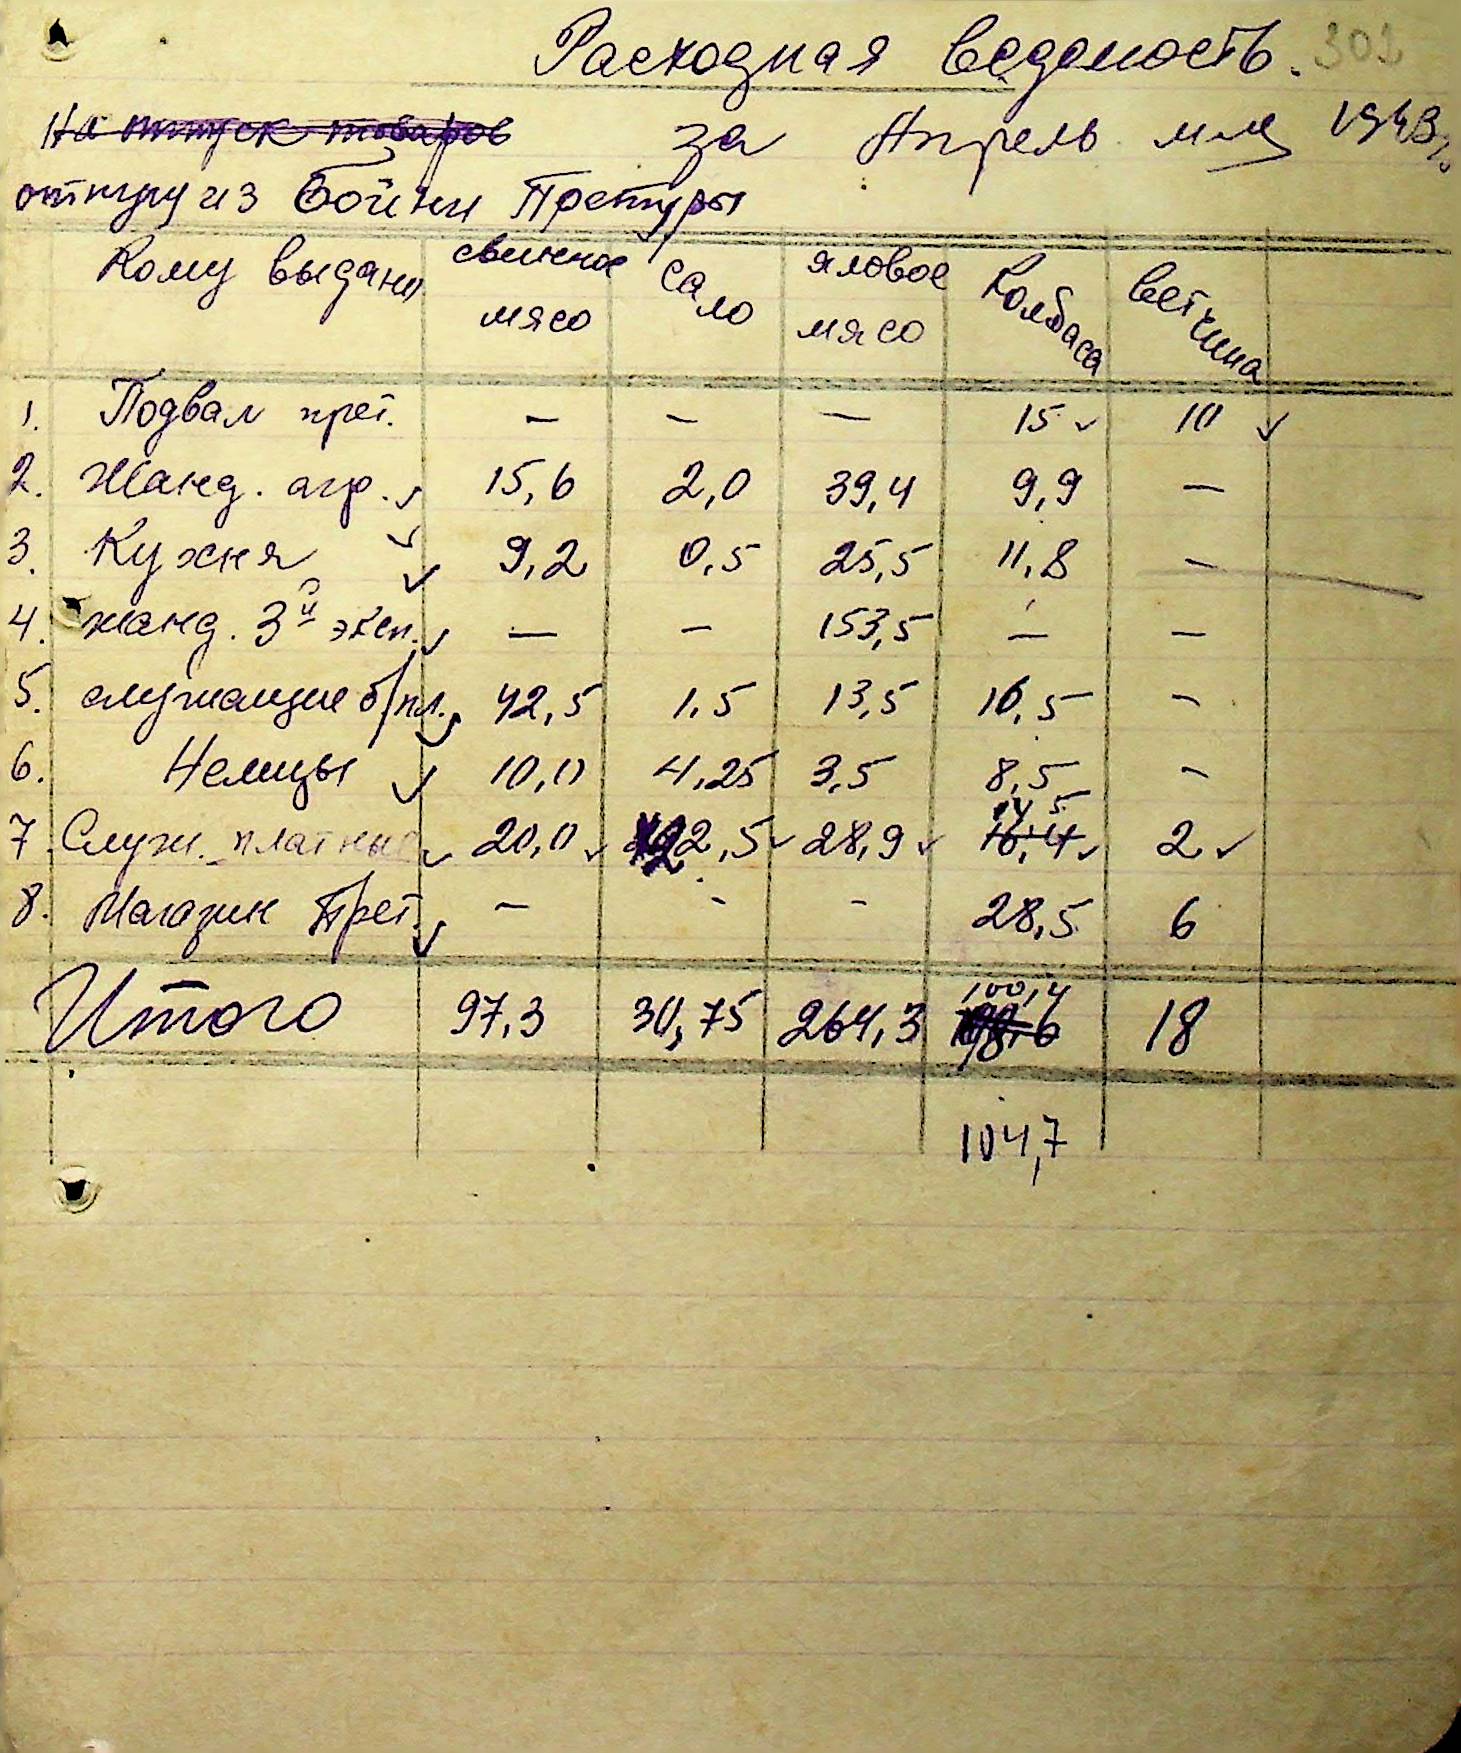 Расходная ведомость. 302
на отпуск товаров за Апрель м-ц 1943г.
отпущ из Бойни Претуры
Кому выдано свинное мясо сало яловое мясо Колбаса ветчина
1. Подвал прет. — — — 15 10
2. Жанд. агр. 15,6 2,0 39,4 9,9 —
3. Кухня 9,2 0,5 25,5 11,8 —
4. жанд. 3й эксп. — — 153,5 — —
5. служащие б/пл. 42,5 1,5 13,5 16,5 —
6. Немцы 10,0 4,25 3,5 8,5 —
14,5
7. Служ. платные 20,0 22,5 28,9 16,4 2
8. Магазин Прет. — - - 28,5 6
100,4
Итого 97,3 30,75 264,3 18
104,7